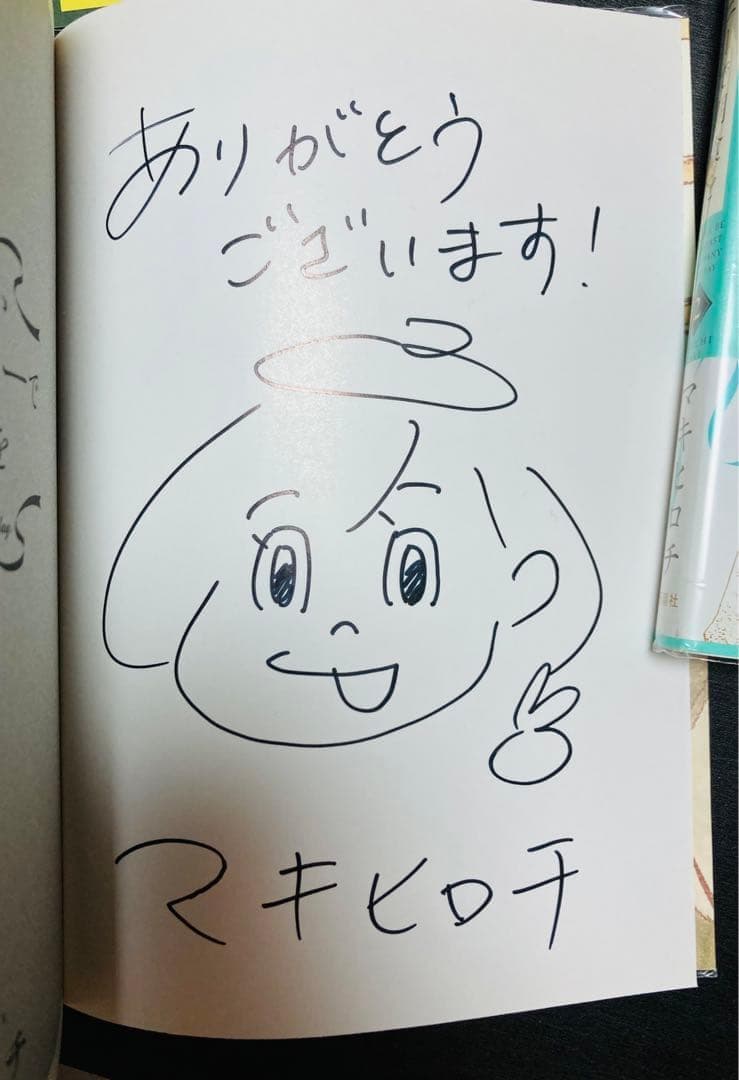 ありがとう
ございます!
マキヒロチ
マキヒロチ